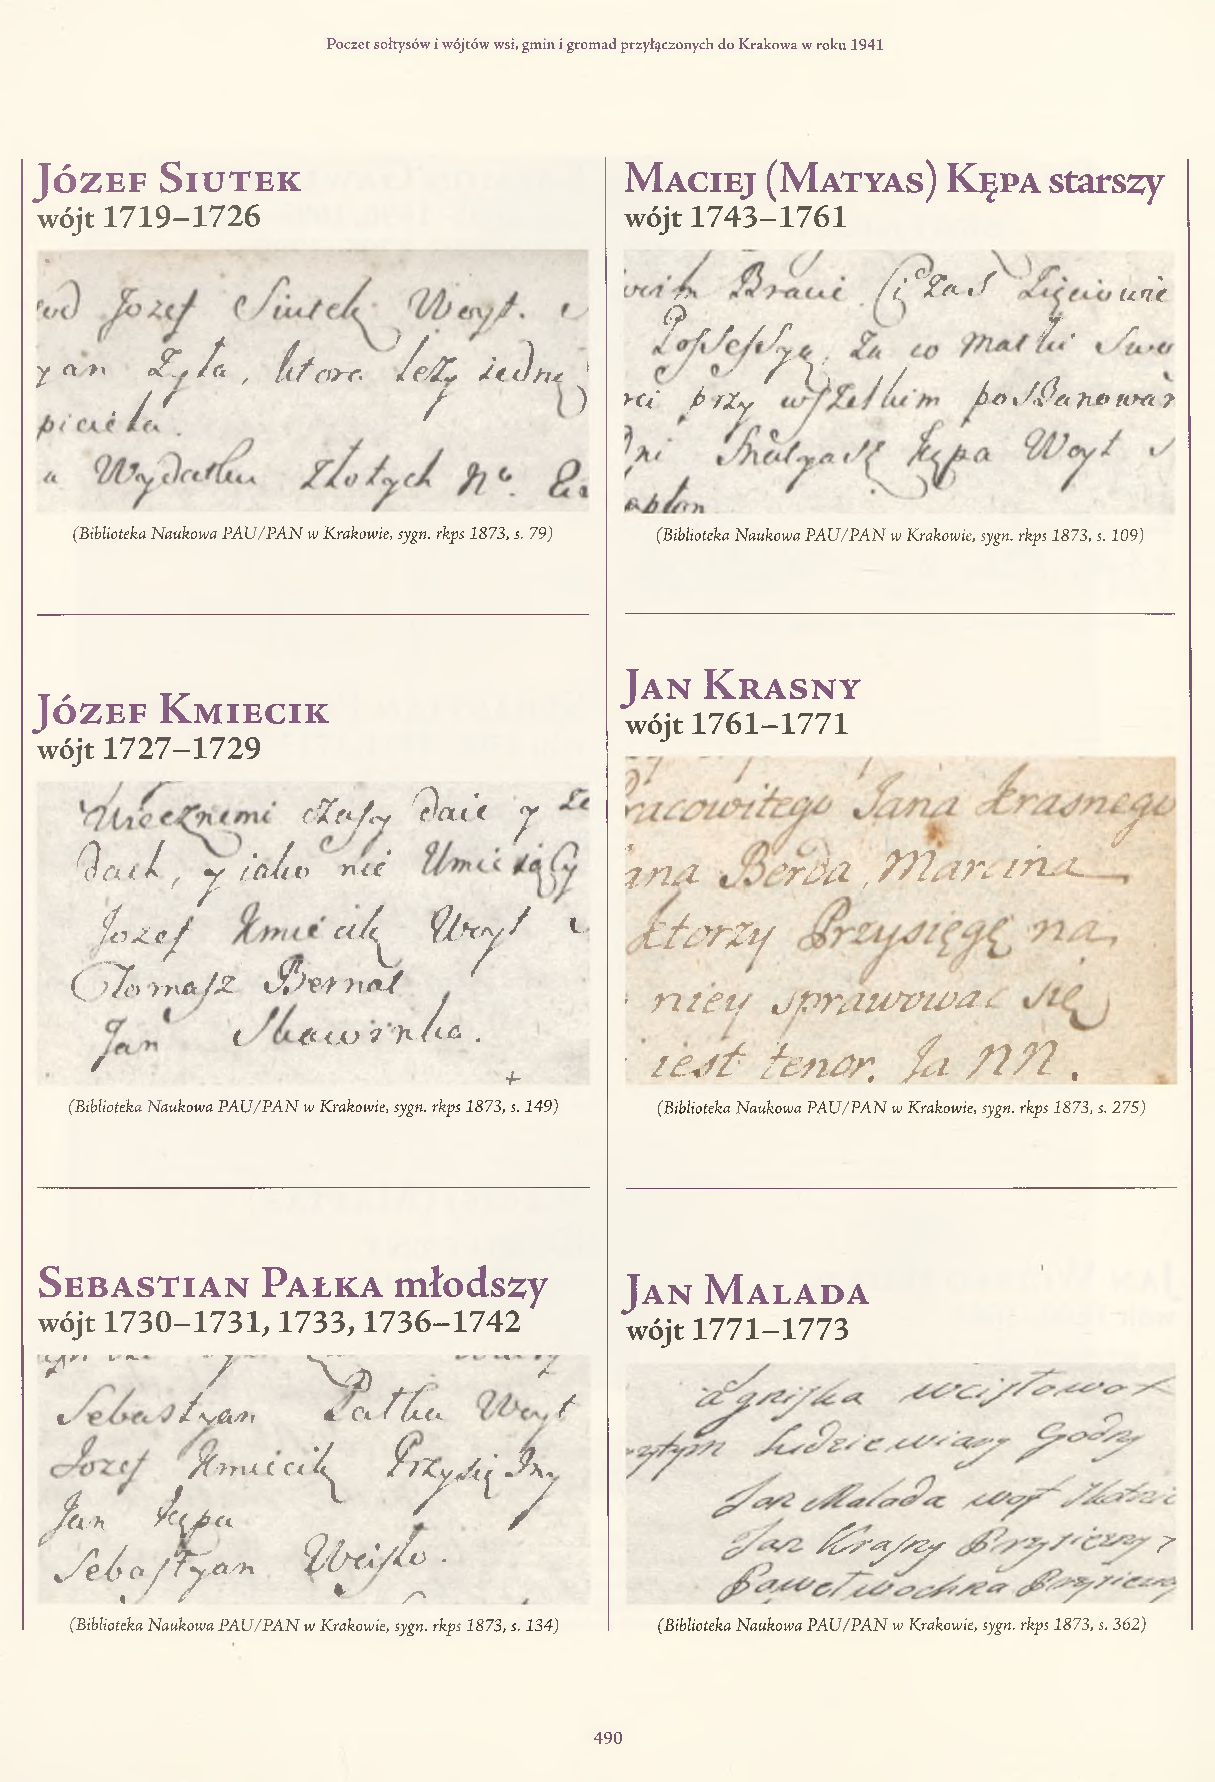 Poczet sołtysów i wójtów wsi, gmin i gromad przyłączonych do Krakowa w roku 1941
Józef Siutek
wójt 1719–1726
Jozef Siutek Woyt.
Zyła, ktora leży iedne
a Wydatku Złotych No.
(Biblioteka Naukowa PAU/PAN w Krakowie, sygn. rkps 1873, s. 79)
Józef Kmiecik
wójt 1727–1729
Wiecznemi czasy daie y
dach, y iako nie
Jozef Kmiecik Woyt
Tomasz Bernat
Jan Skawinka.
(Biblioteka Naukowa PAU/PAN w Krakowie, sygn. rkps 1873, s. 149)
Sebastian Pałka młodszy
wójt 1730–1731, 1733, 1736–1742
Sebastyan Pałka Woyt
Jozef Kmiecik Przysiężny
Jan Kępa
Sebastyan Weisło.
(Biblioteka Naukowa PAU/PAN w Krakowie, sygn. rkps 1873, s. 134)
Maciej (Matyas) Kępa starszy
wójt 1743–1761
Possessyą, za co Matki Swo
przy wszelkim poszanowan
Matyasz Kępa Woyt
(Biblioteka Naukowa PAU/PAN w Krakowie, sygn. rkps 1873, s. 109)
Jan Krasny
wójt 1761–1771
racowitego Jana Krasnego
ana Berda, Marcina
ktorzy Przysięgę na
niey sprawować się
iest tenor. Ja NN.
(Biblioteka Naukowa PAU/PAN w Krakowie, sygn. rkps 1873, s. 275)
Jan Malada
wójt 1771–1773
Agniska
Ludzie wiary Godny
Jan Malada woyt
Jan Krasny Przysiezny
Paweł wochka Przysiezny
(Biblioteka Naukowa PAU/PAN w Krakowie, sygn. rkps 1873, s. 362)
490